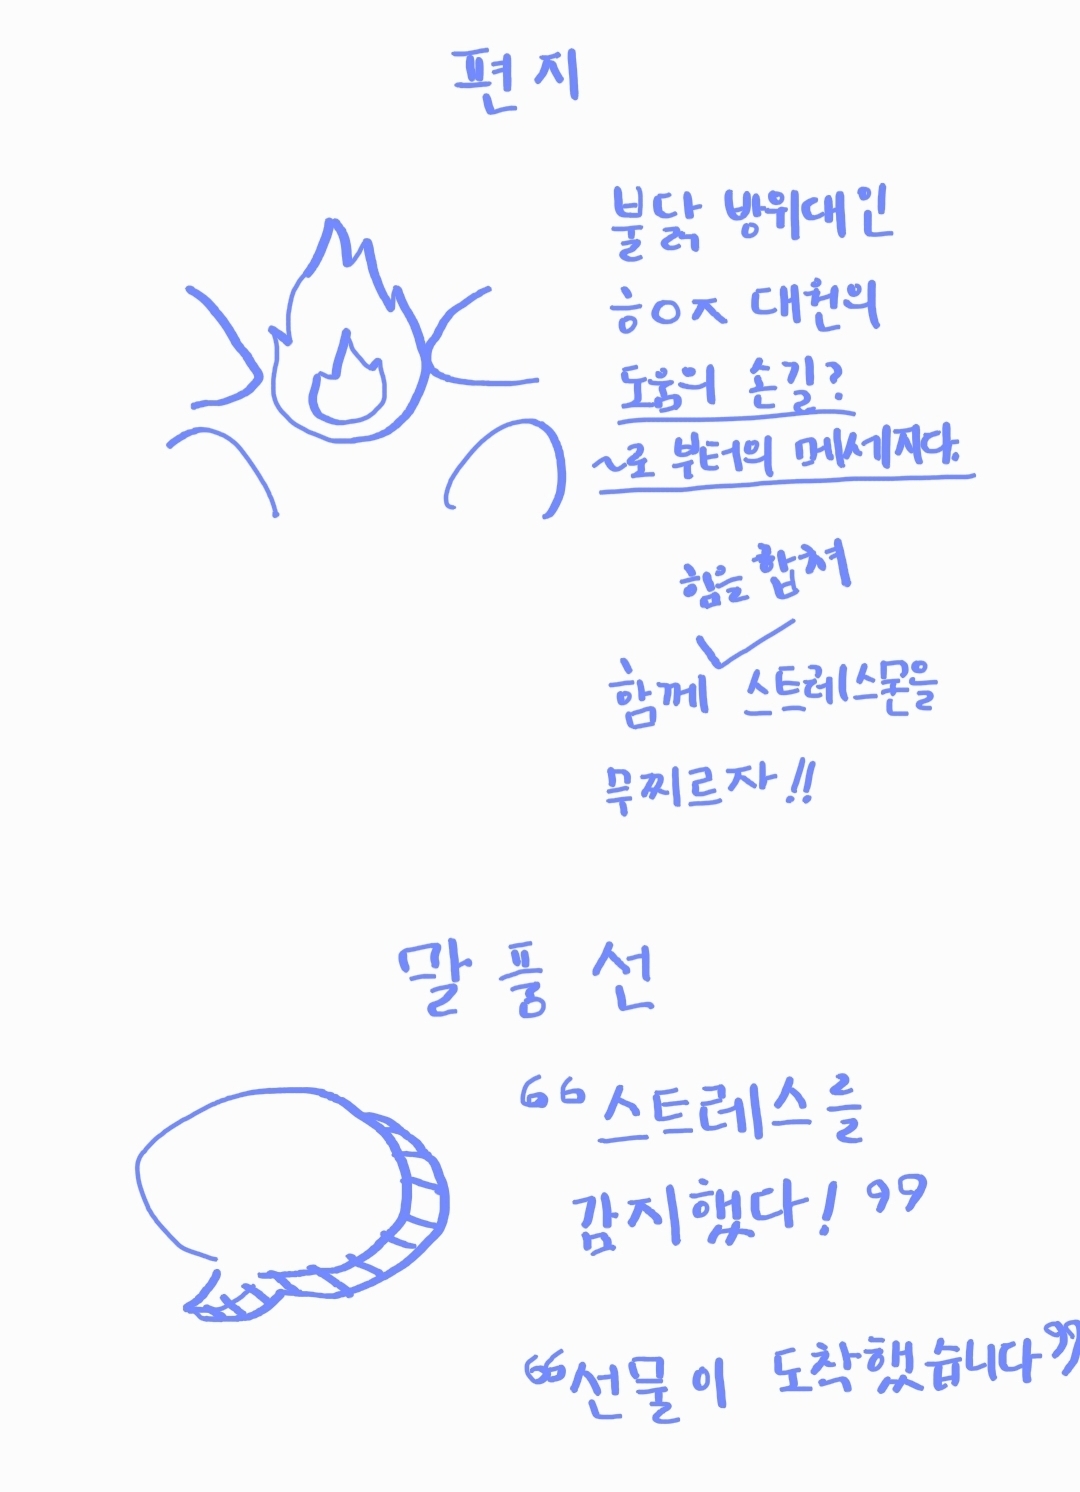 편지
불닭 방위대인
ㅎㅇㅈ 대원의
도움의 손길?
~로 부터의 메세지다.
힘을 합쳐
함께 스트레스몬을
무찌르자!!
말풍선
“스트레스를
감지했다!”
“선물이 도착했습니다”